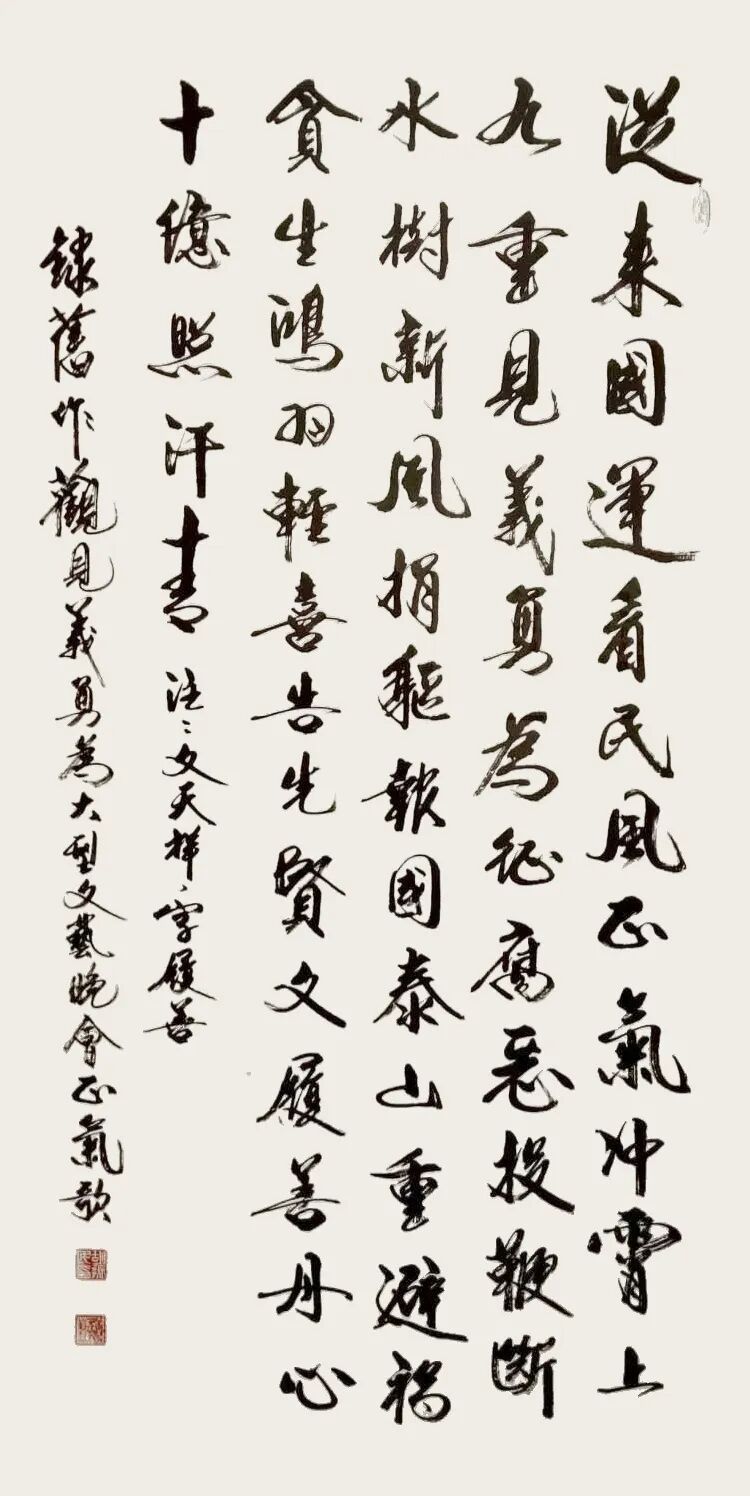 從来國運看民風正氣冲霄上
九重見義勇為征腐惡投鞭斷
水樹新風捐軀報國泰山重避禍
貪生鴻羽輕喜告先賢文履善丹心
十億照汗青
注：文天祥，字履善
錄舊作觀見義勇為大型文藝晚會正氣歌